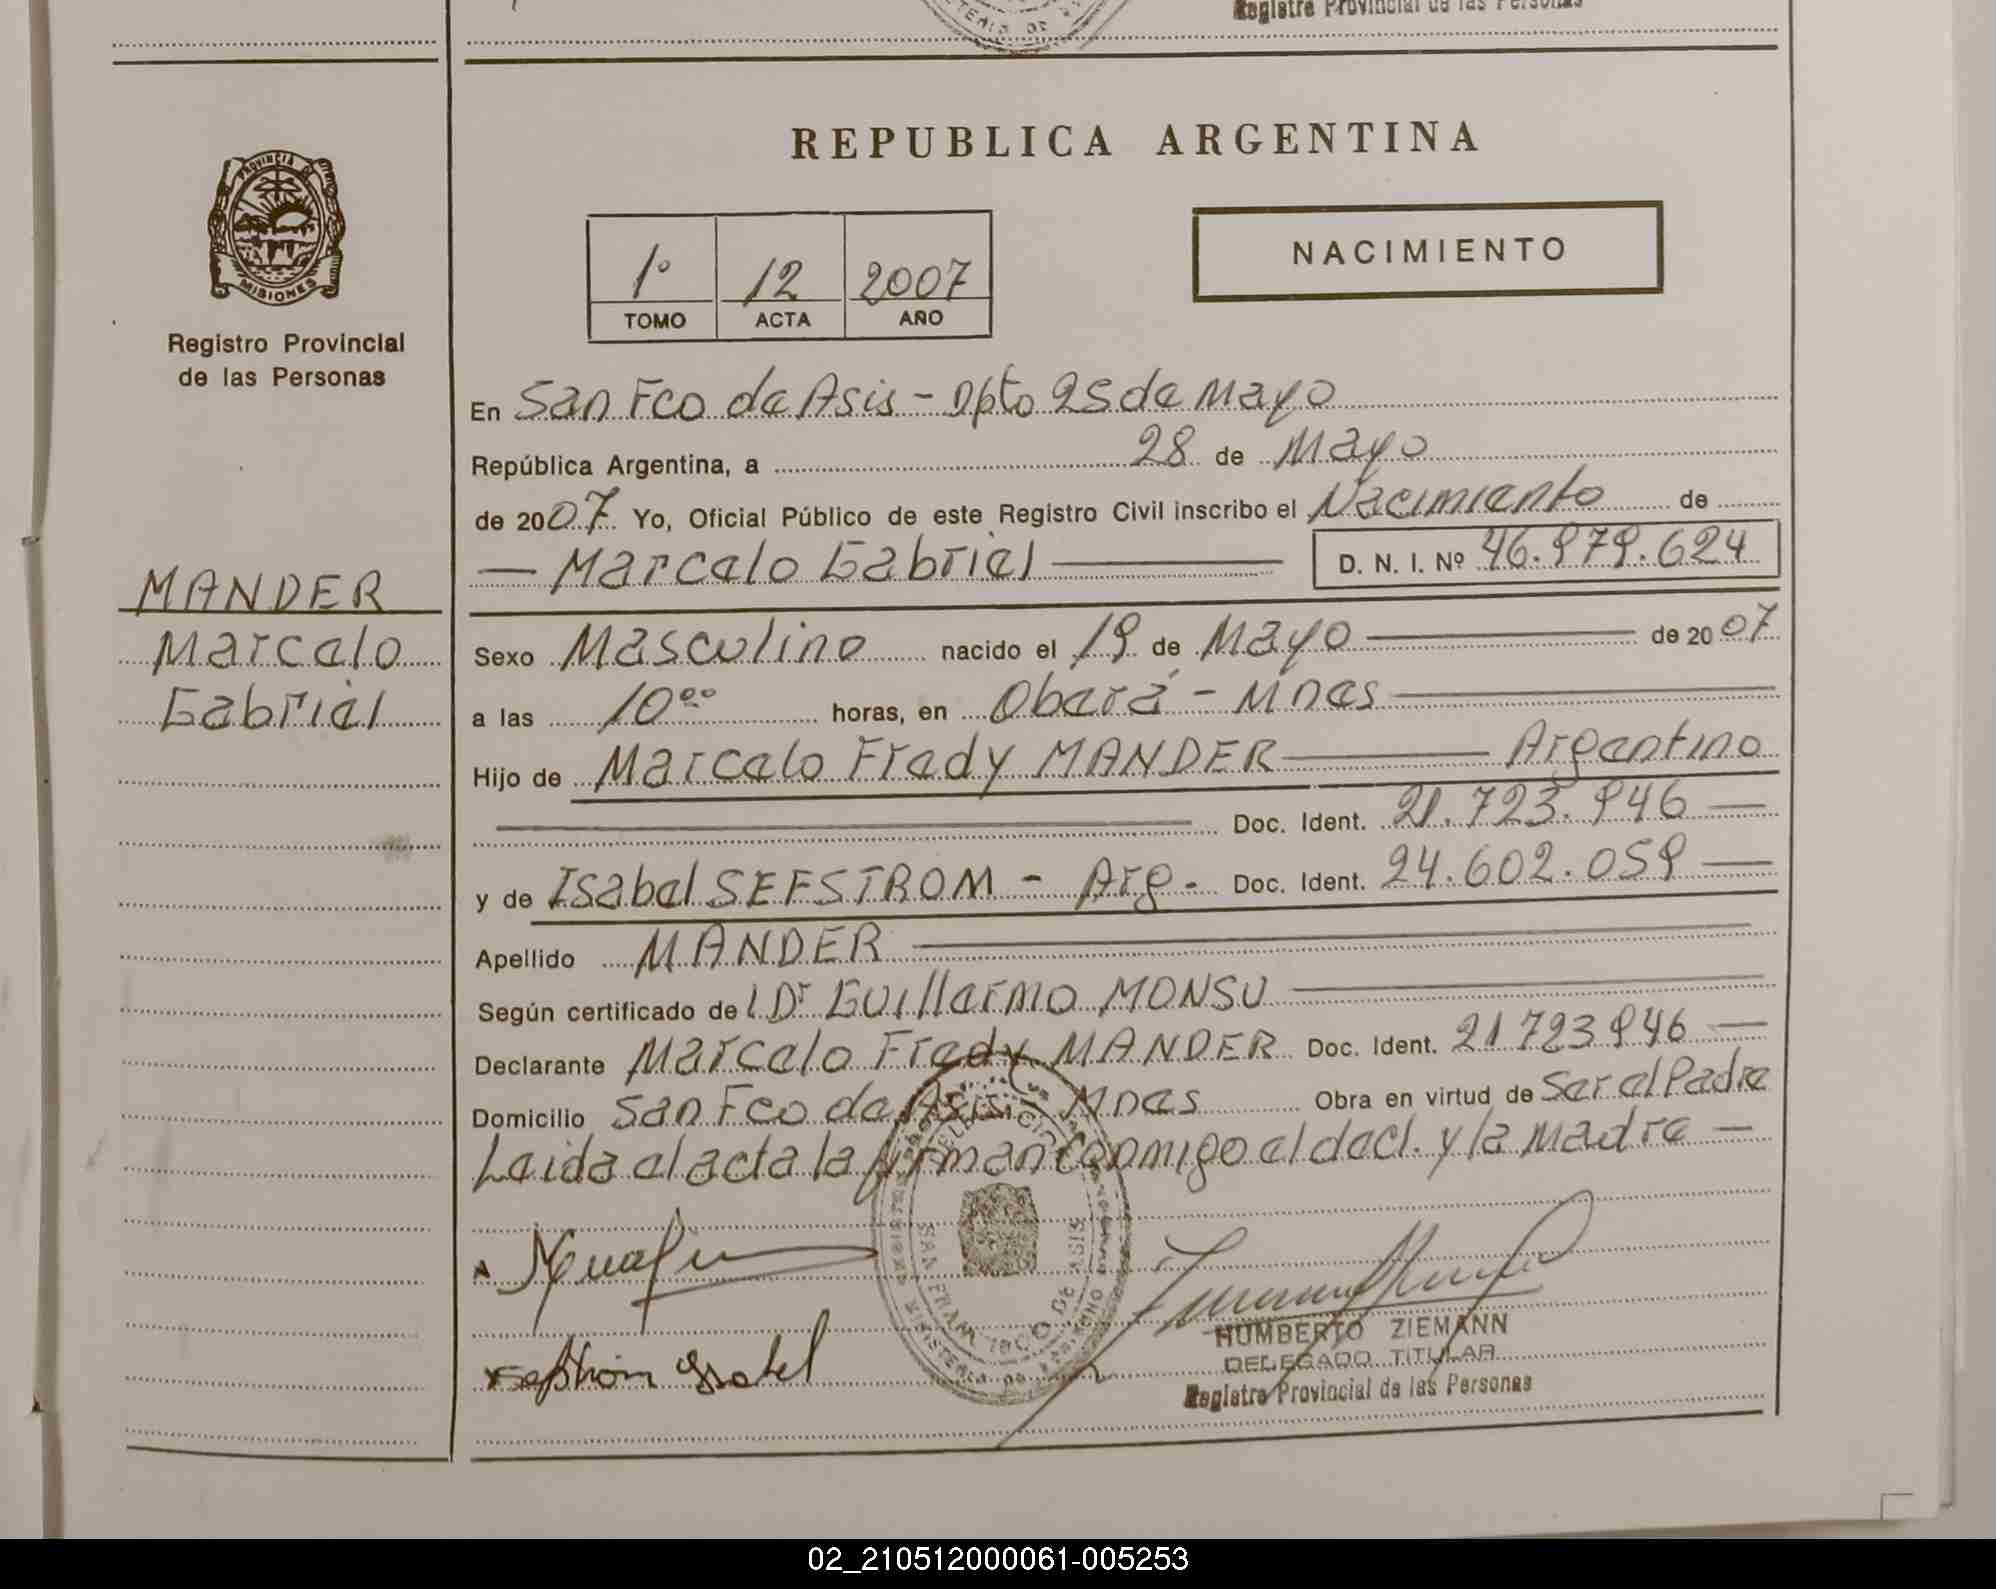 Registro Provincial de las Personas
REPUBLICA ARGENTINA
PROVINCIA DE
MISIONES
Registro Provincial
de las Personas
1º 12 2007
TOMO ACTA AÑO
NACIMIENTO
En San Fco de Asis - Dpto 25 de Mayo
República Argentina, a 28 de Mayo
de 2007 Yo, Oficial Público de este Registro Civil inscribo el Nacimiento de
— Marcelo Gabriel — D. N. I. Nº 46.979.624
MANDER
Marcelo
Gabriel
Sexo Masculino nacido el 19 de Mayo — de 2007
a las 10ºº horas, en Oberá - Mnes —
Hijo de Marcelo Fredy MANDER — Argentino
— Doc. Ident. 21.723.946 —
y de Isabel SEFSTROM - Arg. - Doc. Ident. 24.602.059 —
Apellido MANDER —
Según certificado del Dr Guillermo MONSU —
Declarante Marcelo Fredy MANDER Doc. Ident. 21723946 —
Domicilio San Fco de Asis - Mnes Obra en virtud de Ser el Padre
Leida el acta la firman conmigo el decl. y la Madre —
SAN FRANCISCO DE ASIS
HUMBERTO ZIEMANN
DELEGADO TITULAR
Registro Provincial de las Personas
02_210512000061-005253